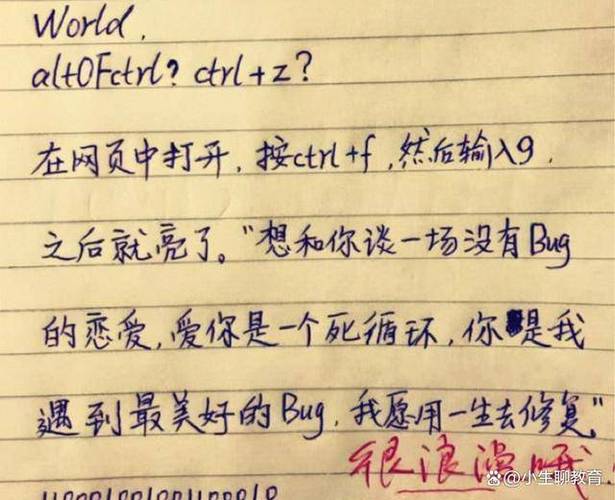 World,
alt0Fctrl? ctrl+z?
在网页中打开,按ctrl+f,然后输入9,
之后就亮了。"想和你谈一场没有Bug
的恋爱,爱你是一个死循环,你是我
遇到最美好的Bug,我愿用一生去修复"
很浪漫哦
@小生聊教育